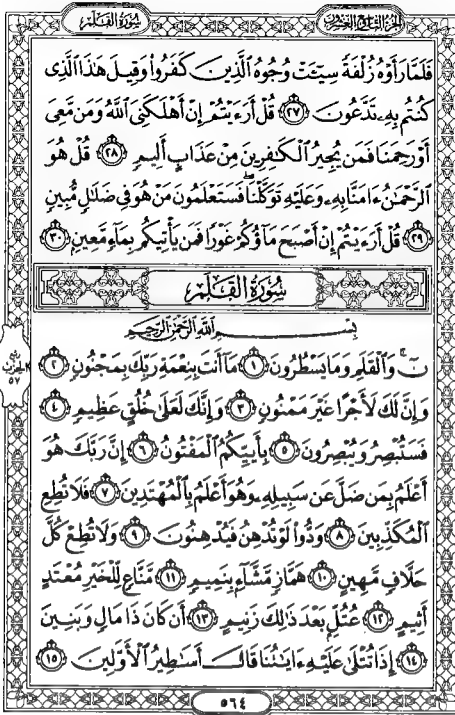 سُورَةُ القَلَمِ
الجزء التاسع والعشرون
فَلَمَّا رَأَوْهُ زُلْفَةً سِيٓـَٔتْ وُجُوهُ ٱلَّذِينَ كَفَرُوا۟ وَقِيلَ هَـٰذَا ٱلَّذِى
كُنتُم بِهِۦ تَدَّعُونَ ٢٧ قُلْ أَرَءَيْتُمْ إِنْ أَهْلَكَنِىَ ٱللَّهُ وَمَن مَّعِىَ
أَوْ رَحِمَنَا فَمَن يُجِيرُ ٱلْكَـٰفِرِينَ مِنْ عَذَابٍ أَلِيمٍ ٢٨ قُلْ هُوَ
ٱلرَّحْمَـٰنُ ءَامَنَّا بِهِۦ وَعَلَيْهِ تَوَكَّلْنَا ۖ فَسَتَعْلَمُونَ مَنْ هُوَ فِى ضَلَـٰلٍ مُّبِينٍ
٢٩ قُلْ أَرَءَيْتُمْ إِنْ أَصْبَحَ مَآؤُكُمْ غَوْرًا فَمَن يَأْتِيكُم بِمَآءٍ مَّعِينٍۭ ٣٠
سُورَةُ القَلَمِ
بِسْمِ ٱللَّهِ ٱلرَّحْمَـٰنِ ٱلرَّحِيمِ
نٓ ۚ وَٱلْقَلَمِ وَمَا يَسْطُرُونَ ١ مَآ أَنتَ بِنِعْمَةِ رَبِّكَ بِمَجْنُونٍ ٢
وَإِنَّ لَكَ لَأَجْرًا غَيْرَ مَمْنُونٍ ٣ وَإِنَّكَ لَعَلَىٰ خُلُقٍ عَظِيمٍ ٤
فَسَتُبْصِرُ وَيُبْصِرُونَ ٥ بِأَييِّكُمُ ٱلْمَفْتُونُ ٦ إِنَّ رَبَّكَ هُوَ
أَعْلَمُ بِمَن ضَلَّ عَن سَبِيلِهِۦ وَهُوَ أَعْلَمُ بِٱلْمُهْتَدِينَ ٧ فَلَا تُطِعِ
ٱلْمُكَذِّبِينَ ٨ وَدُّوا۟ لَوْ تُدْهِنُ فَيُدْهِنُونَ ٩ وَلَا تُطِعْ كُلَّ
حَلَّافٍ مَّهِينٍ ١٠ هَمَّازٍ مَّشَّآءٍۭ بِنَمِيمٍ ١١ مَّنَّاعٍ لِّلْخَيْرِ مُعْتَدٍ
أَثِيمٍ ١٢ عُتُلٍّۭ بَعْدَ ذَٰلِكَ زَنِيمٍ ١٣ أَن كَانَ ذَا مَالٍ وَبَنِينَ
١٤ إِذَا تُتْلَىٰ عَلَيْهِ ءَايَـٰتُنَا قَالَ أَسَـٰطِيرُ ٱلْأَوَّلِينَ ١٥
ربع
الحزب
٥٧
٥٦٤